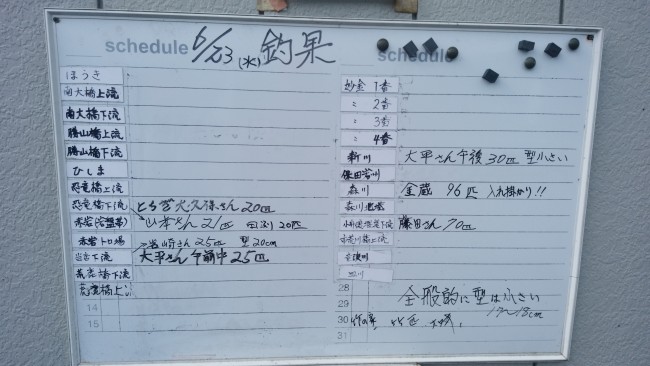 schedule 6/23 (水) 釣果
schedule
ほうき
南大橋上流
南大橋下流
勝山橋上流
勝山橋下流
ひしま
恐竜橋上流
恐竜橋下流 大久保さん 20匹
赤岩(岩盤帯) 山本さん 21匹 20匹
赤岩トロ場 岩崎さん 25匹 型20cm
下流 大平さん 午前中 25匹
荒鹿橋下流
荒鹿橋上流
14
15
妙金 1番
〃 2番
〃 3番
〃 4番
新川 大平さん 午後 30匹 型小さい
保田 川
森川 金蔵 96匹 入れ掛かり!!
森川
下流 藤田さん 70匹
上流
28
29 全般的に型は小さい
17〜18cm
30
31